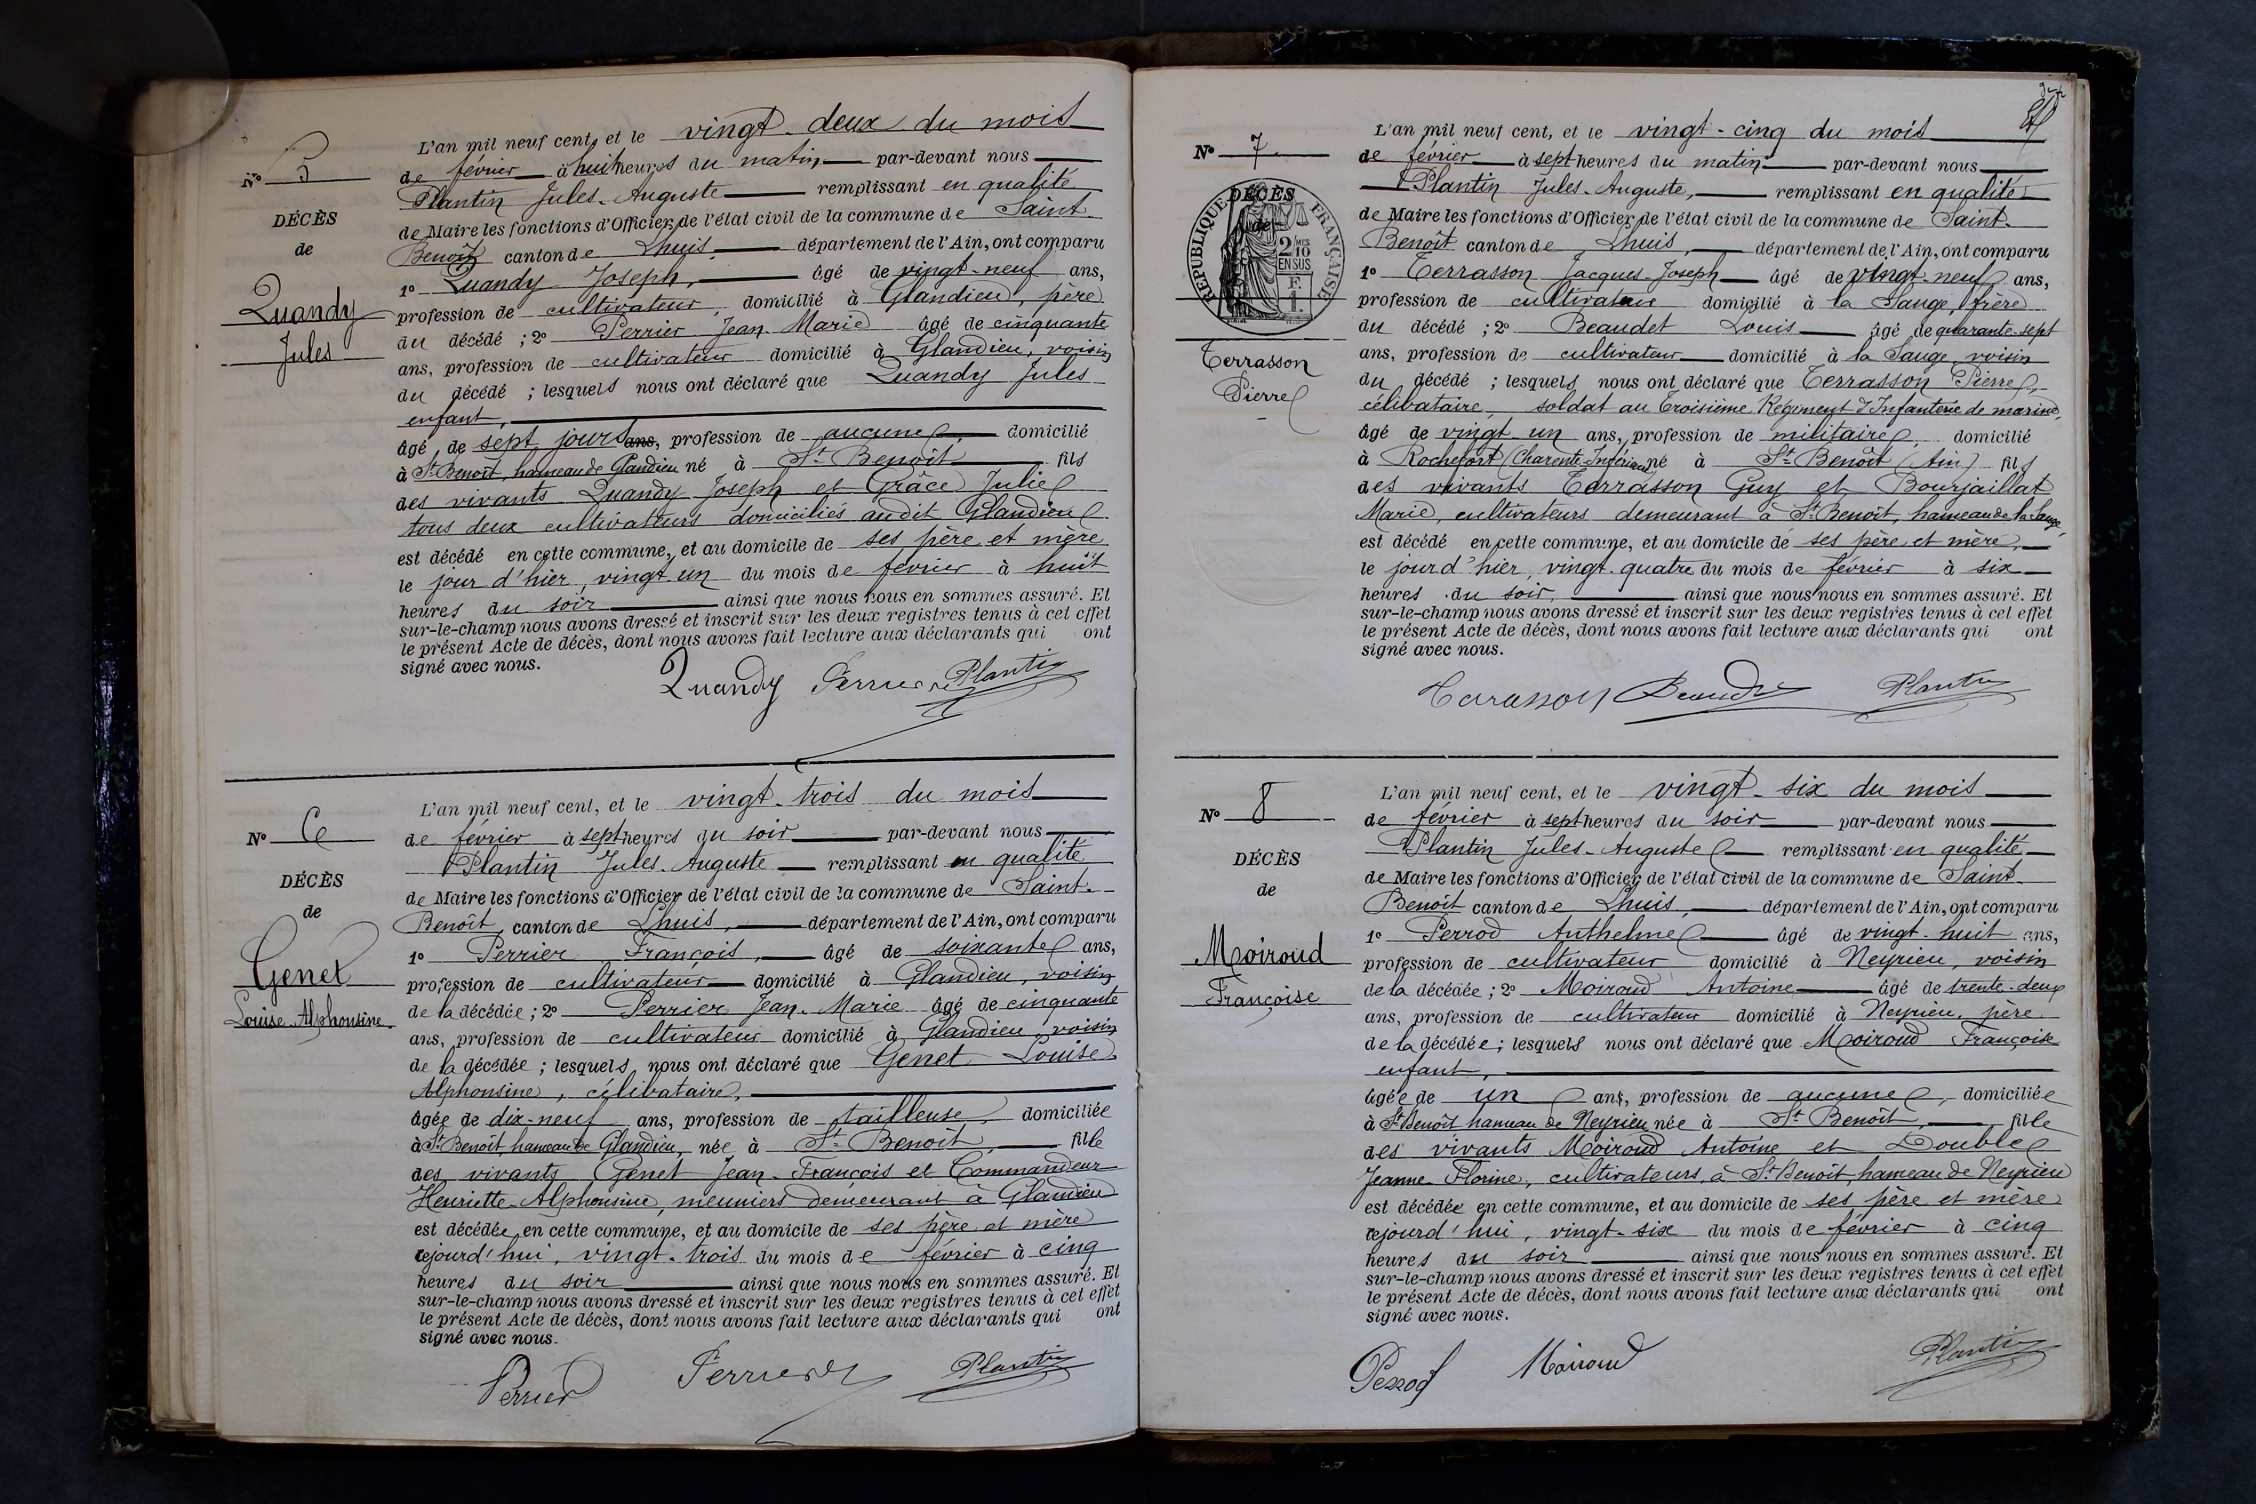 L'an mil neuf cent, et le vingt-deux du mois
N° 5
de février à huit heures du matin, par-devant nous
Plantin Jules-Auguste remplissant en qualité
DÉCÈS
de Maire les fonctions d'Officier de l'état civil de la commune de Saint
de
Benoît canton de Lhuis, département de l'Ain, ont comparu
1° Quandy Joseph, âgé de vingt-neuf ans,
Quandy
profession de cultivateur, domicilié à Glandieu, père
Jules
du décédé ; 2° Perrier Jean-Marie âgé de cinquante
ans, profession de cultivateur domicilié à Glandieu, voisin
du décédé ; lesquels nous ont déclaré que Quandy Jules
enfant,
âgé de sept jours ans, profession de aucune, domicilié
à St Benoît, hameau de Glandieu né à St Benoît fils
des vivants Quandy Joseph et Grâce Julie
tous deux cultivateurs domiciliés audit Glandieu
est décédé en cette commune, et au domicile de ses père et mère
le jour d'hier, vingt un du mois de février à huit
heures du soir ainsi que nous nous en sommes assuré. Et
sur-le-champ nous avons dressé et inscrit sur les deux registres tenus à cet effet
le présent Acte de décès, dont nous avons fait lecture aux déclarants qui ont
signé avec nous.
Quandy Perrier Plantin
L'an mil neuf cent, et le vingt-trois du mois
N° 6
de février à sept heures du soir par-devant nous
Plantin Jules-Auguste remplissant en qualité
DÉCÈS
de Maire les fonctions d'Officier de l'état civil de la commune de Saint-
de
Benoît, canton de Lhuis, département de l'Ain, ont comparu
1° Perrier François, âgé de soixante ans,
Genet
profession de cultivateur domicilié à Glandieu, voisin
Louise-Alphonsine
de la décédée ; 2° Perrier Jean-Marie âgé de cinquante
ans, profession de cultivateur domicilié à Glandieu, voisin
de la décédée ; lesquels nous ont déclaré que Genet Louise
Alphonsine, célibataire,
âgée de dix-neuf ans, profession de tailleuse, domiciliée
à St Benoît, hameau de Glandieu, née à St Benoît, fille
des vivants Genet Jean-François et Commandeur
Henriette-Alphonsine, meuniers demeurant à Glandieu
est décédée en cette commune, et au domicile de ses père et mère
cejourd'hui, vingt-trois du mois de février à cinq
heures du soir ainsi que nous nous en sommes assuré. Et
sur-le-champ nous avons dressé et inscrit sur les deux registres tenus à cet effet
le présent Acte de décès, dont nous avons fait lecture aux déclarants qui ont
signé avec nous.
Perrier Perrier Plantin
L'an mil neuf cent, et le vingt-cinq du mois
N° 7
de février à sept heures du matin par-devant nous
Plantin Jules-Auguste, remplissant en qualité
DÉCÈS
de
RÉPUBLIQUE FRANÇAISE
2 MES
10
EN SUS
de Maire les fonctions d'Officier de l'état civil de la commune de Saint-
Benoît canton de Lhuis, département de l'Ain, ont comparu
1° Terrasson Jacques-Joseph âgé de vingt-neuf ans,
profession de cultivateur domicilié à la Sauge, frère
du décédé ; 2° Beaudet Louis âgé de quarante-sept
Terrasson
ans, profession de cultivateur domicilié à la Sauge, voisin
Pierre
du décédé ; lesquels nous ont déclaré que Terrasson Pierre,
célibataire, soldat au Troisième Régiment d'Infanterie de marine,
âgé de vingt-un ans, profession de militaire, domicilié
à Rochefort (Charente-Inférieure) né à St Benoît (Ain) fils
des vivants Terrasson Guy et Bourjaillat
Marie, cultivateurs demeurant à St Benoît, hameau de la Sauge,
est décédé en cette commune, et au domicile de ses père et mère,
le jour d'hier, vingt-quatre du mois de février à six
heures du soir, ainsi que nous nous en sommes assuré. Et
sur-le-champ nous avons dressé et inscrit sur les deux registres tenus à cet effet
le présent Acte de décès, dont nous avons fait lecture aux déclarants qui ont
signé avec nous.
Terrasson Beaudet Plantin
L'an mil neuf cent, et le vingt-six du mois
N° 8
de février à sept heures du soir par-devant nous
Plantin Jules-Auguste remplissant en qualité
DÉCÈS
de Maire les fonctions d'Officier de l'état civil de la commune de Saint-
de
Benoît canton de Lhuis, département de l'Ain, ont comparu
1° Perrod Anthelme âgé de vingt-huit ans,
Moiroud
profession de cultivateur domicilié à Neyrieu, voisin
Françoise
de la décédée ; 2° Moiroud Antoine âgé de trente-deux
ans, profession de cultivateur domicilié à Neyrieu, père
de la décédée ; lesquels nous ont déclaré que Moiroud Françoise
enfant,
âgée de un an, profession de aucune, domiciliée
à St Benoît hameau de Neyrieu née à St Benoît, fille
des vivants Moiroud Antoine et Double
Jeanne-Florine, cultivateurs à St Benoît, hameau de Neyrieu
est décédée en cette commune, et au domicile de ses père et mère
cejourd'hui, vingt-six du mois de février à cinq
heures du soir ainsi que nous nous en sommes assuré. Et
sur-le-champ nous avons dressé et inscrit sur les deux registres tenus à cet effet
le présent Acte de décès, dont nous avons fait lecture aux déclarants qui ont
signé avec nous.
Perrod Moiroud Plantin